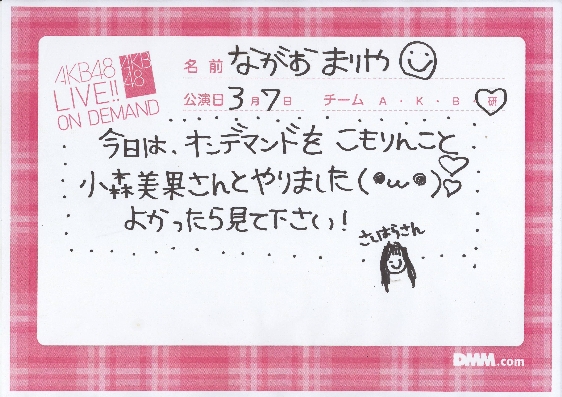 AKB48
LIVE!!
ON DEMAND
AKB
48
名前 ながお まりや
公演日 3月7日 チーム A・K・B・研
今日は、オンデマンドを こもりんこと
小森美果さんとやりました(●ω●)♡♡
よかったら見て下さい!
さしはらさん
DMM.com